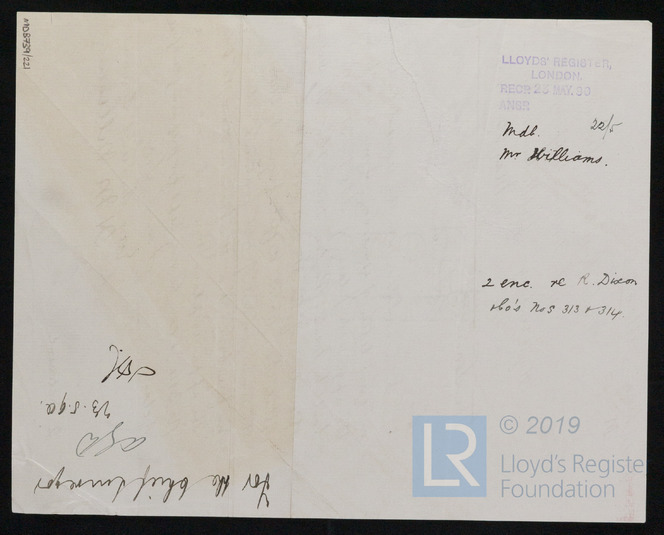 LLOYDS' REGISTER,
LONDON.
RECD 23 MAY. 90
ANSR
22/5
Mdb.
Mr Williams.
2 enc. re R. Dixon
& Co's Nos 313 & 314.
For the Chief Surveyor
23.5.90.
MD8739/221
© 2019
LR
Lloyd's Registe
Foundation